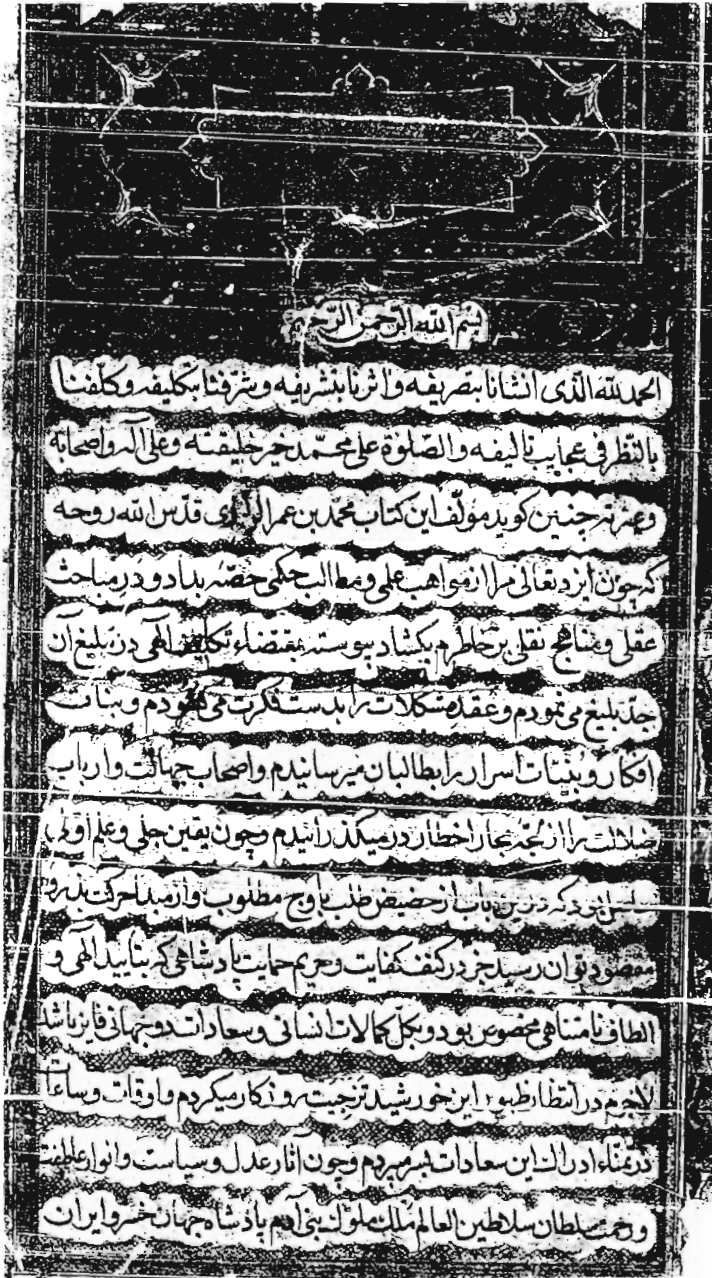 بسم الله الرحمن الرحیم
الحمد لله الذی انشانا بتصریفه واثرنا بتشریفه وشرفنا بتکلیفه وکلفنا
بالنظر فی عجایب تالیفه والصلوة علی محمد خیر خلیقته وعلی آله واصحابه
وعترته چنین کوید مؤلف این کتاب محمد بن عمر الرازی قدس الله روحه
که چون ایزد تعالی مرا از مواهب علمی ومطالب حکمی حصه بداد ودر مباحث
عقلی ومناهج نقلی بر خاطرم بکشاد پیوسته بمقتضاء تکلیف الهی در تبلیغ آن
جد بلیغ می نمودم وعقده مشکلات را بدست فکرت می کشودم وبنات
افکار وبنیات اسرار را بطالبان میرسانیدم واصحاب جهالت وارباب
ضلالت را از لجه بحار اخطار در میکذرانیدم وچون یقین جلی وعلم اولی
بود که درین باب از حضیض طلب باوج مطلوب واز مبدا حرکت بذروه
مقصود توان رسید جز در کنف کفایت وحریم حمایت پادشاهی که بتایید الهی و
الطاف نامتناهی مخصوص بود وبکل کمالات انسانی وسعادات دو جهانی فایز باشد
لاجرم در انتظار طلوع این خورشید تزجیت روزکار میکردم واوقات وساعات
در تمناء ادراک این سعادات بسر میبردم وچون آثار عدل وسیاست وانوار عاطفت
ورحمت سلطان سلاطین العالم ملک ملوک بنی آدم پادشاه جهان خسرو ایران